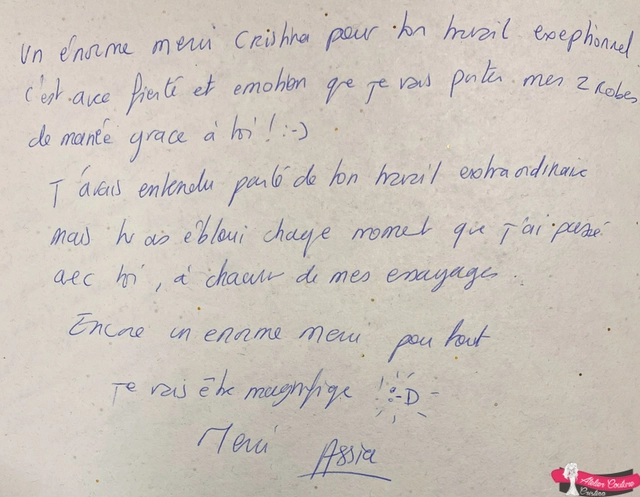 Un énorme merci Cristina pour ton travail exceptionnel
c'est avec fierté et emotion que je vais porter mes 2 robes
de mariée grace à toi ! :-)
J'avais entendu parlé de ton travail extraordinaire
mais tu as ébloui chaque moment que j'ai passé
avec toi, à chacun de mes essayages.
Encore un enorme merci pour tout
Je vais être magnifique :-D
Merci Assia
Atelier Couture
Cristina